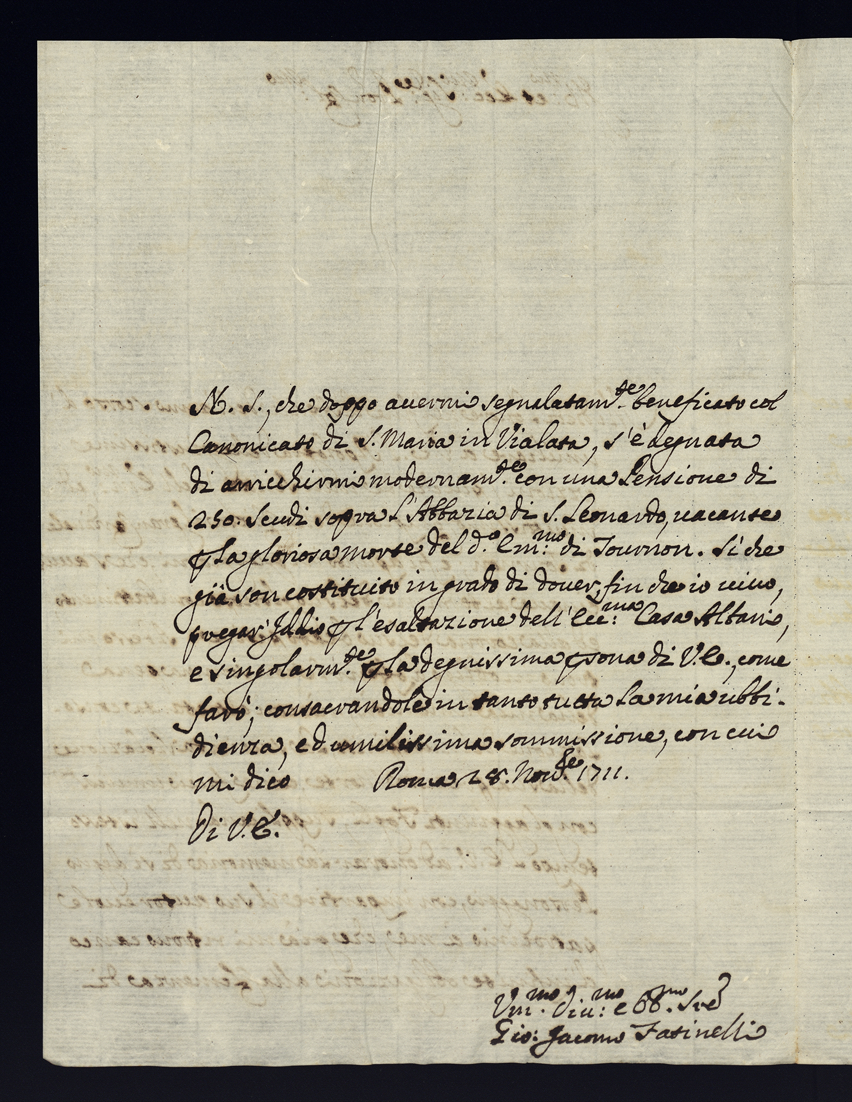 N. S., che doppo avermi segnalatam.te beneficato col
Canonicato di S. Maria in Vialata, s'è degnata
di arricchirmi modernam.te con una Pensione di
250. Scudi sopra l'Abbazia di S. Leonardo, vacante
p la gloriosa morte del d.o Em.mo di Tournon. Si che
già son costituito in grado di dover, fin che io vivo,
pregar' Iddio p l'esaltazione dell'Ecc:ma Casa Albani,
e singolarm.te p la degnissima psona di V.E., come
farò; consacrandole in tanto tutta la mia ubbi-
dienza, ed umilissima sommissione, con cui
mi dico Roma 28. Nov.bre 1711.
Di V.E.
Um.mo Div:mo e Obb.mo Sre
Gio: Jacomo Fatinelli